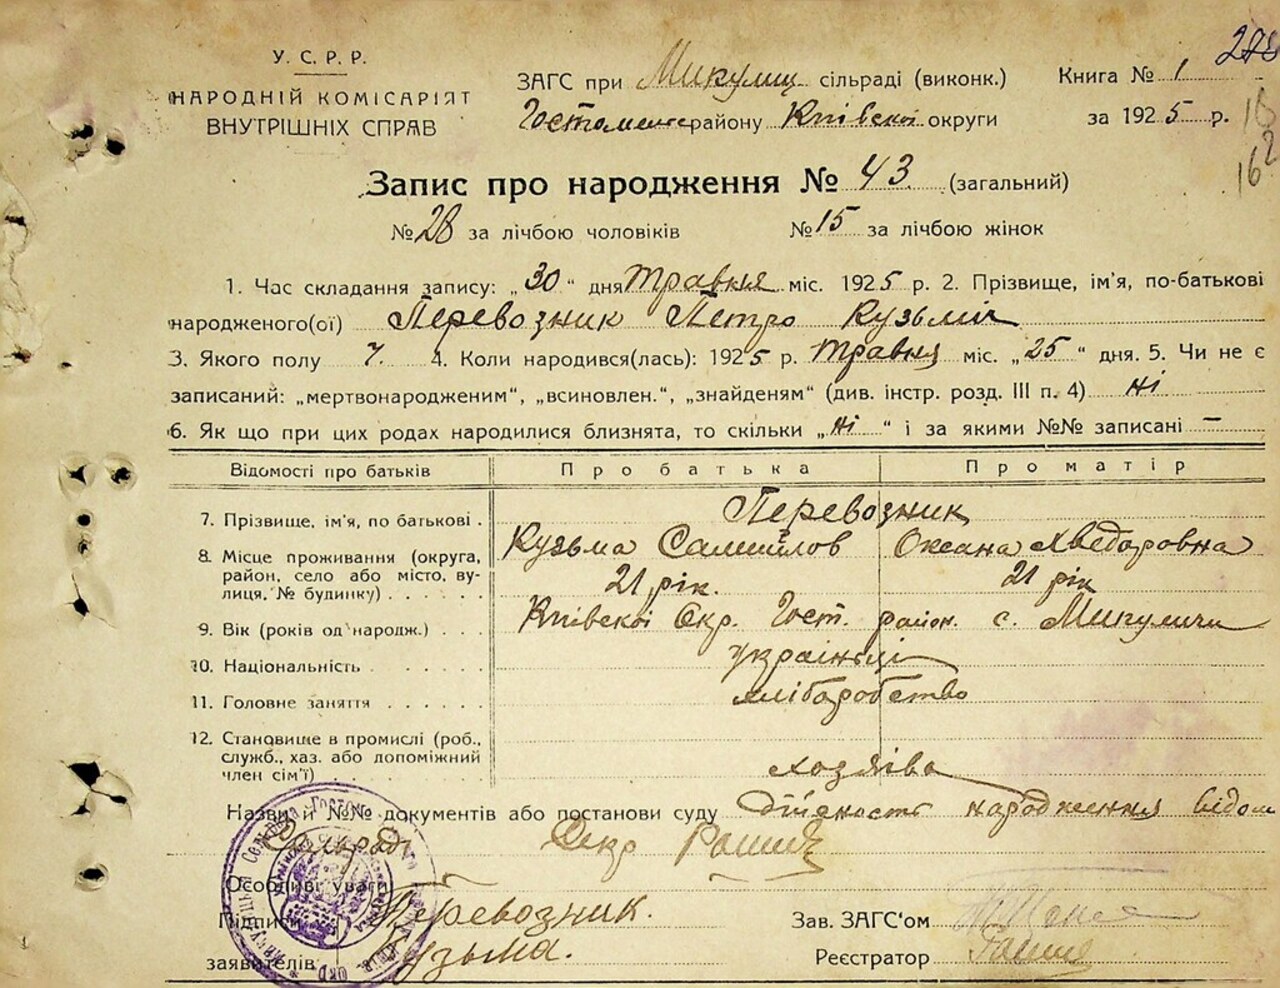 278
У. С. Р. Р.
НАРОДНІЙ КОМІСАРІЯТ
ВНУТРІШНІХ СПРАВ
ЗАГС при Микулиц сільраді (виконк.)
району Київскої округи
Книга № 1
за 1925 р.
16
162
Запис про народження № 43 (загальний)
№ 28 за лічбою чоловіків № 15 за лічбою жінок
1. Час складання запису: „30“ дня травня міс. 1925 р. 2. Прізвище, ім'я, по-батькові
народженого(ої) Перевозник Петро Кузьмич
3. Якого полу ч. 4. Коли народився(лась): 1925 р. травня міс. „25“ дня. 5. Чи не є
записаний: „мертвонародженим“, „всиновлен.“, „знайденям“ (див. інстр. розд. III п. 4) ні
6. Як що при цих родах народилися близнята, то скільки „ні“ і за якими №№ записані —
Відомості про батьків Про батька Про матір
7. Прізвище, ім'я, по батькові . Перевозник
Кузьма Самийлов Оксана Хведоровна
8. Місце проживання (округа,
район, село або місто, вулиця, № будинку) . . . . 21 рік. 21 рік
9. Вік (років од народж.) . . . Київскої Окр. Гост. район. с. Микуличи
10. Національність . . . . . українці
11. Головне заняття . . . . . . хліборобство
12. Становище в промислі (роб.,
служб., хаз. або допоміжний
член сім'ї) . . . . хозяїва
Назви й №№ документів або постанови суду дійсность народження відом
Сельраді Секр
Особливі уваги
Підписи Перевозник.
заявителів Кузьма.
Зав. ЗАГС'ом
Реєстратор